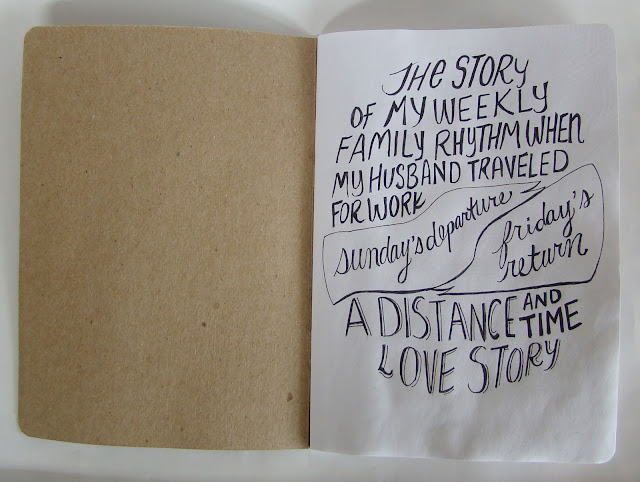 THE STORY
OF MY WEEKLY
FAMILY RHYTHM WHEN
MY HUSBAND TRAVELED
FOR WORK
sunday's departure
friday's
return
A DISTANCE AND
TIME
LOVE STORY